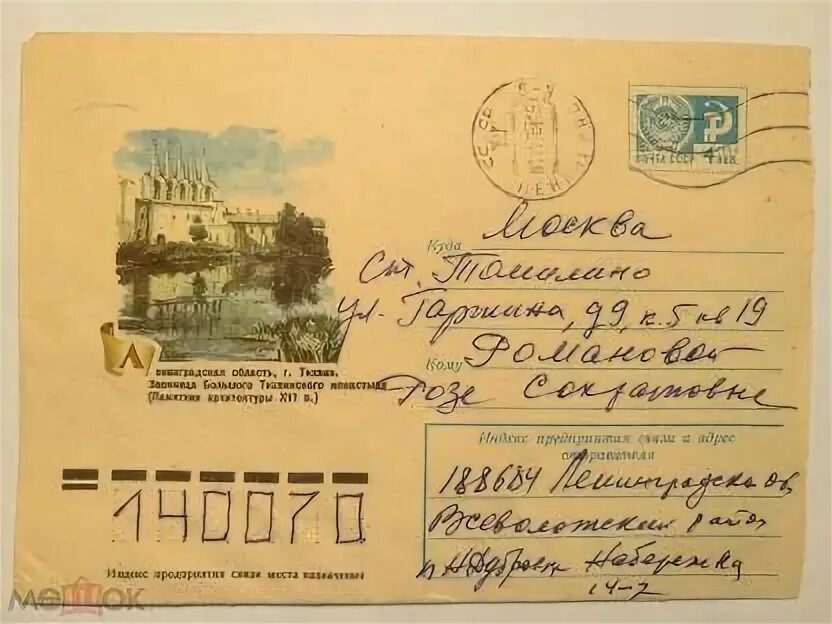 ПОЧТА СССР 4 коп
Куда Москва
ст. Томилино
ул. Гаршина, д9, к.5 кв 19
Кому Романовой
Розе Сократовне
Ленинградская область, г. Тихвин.
Звонница Большого Тихвинского монастыря
(Памятник архитектуры XVI в.)
Индекс предприятия связи и адрес
отправителя
188684 Ленинградская об,
Всеволожский район
п Н Дубровка Набережная
14-2
140070
Индекс предприятия связи места назначения
МЕШОК